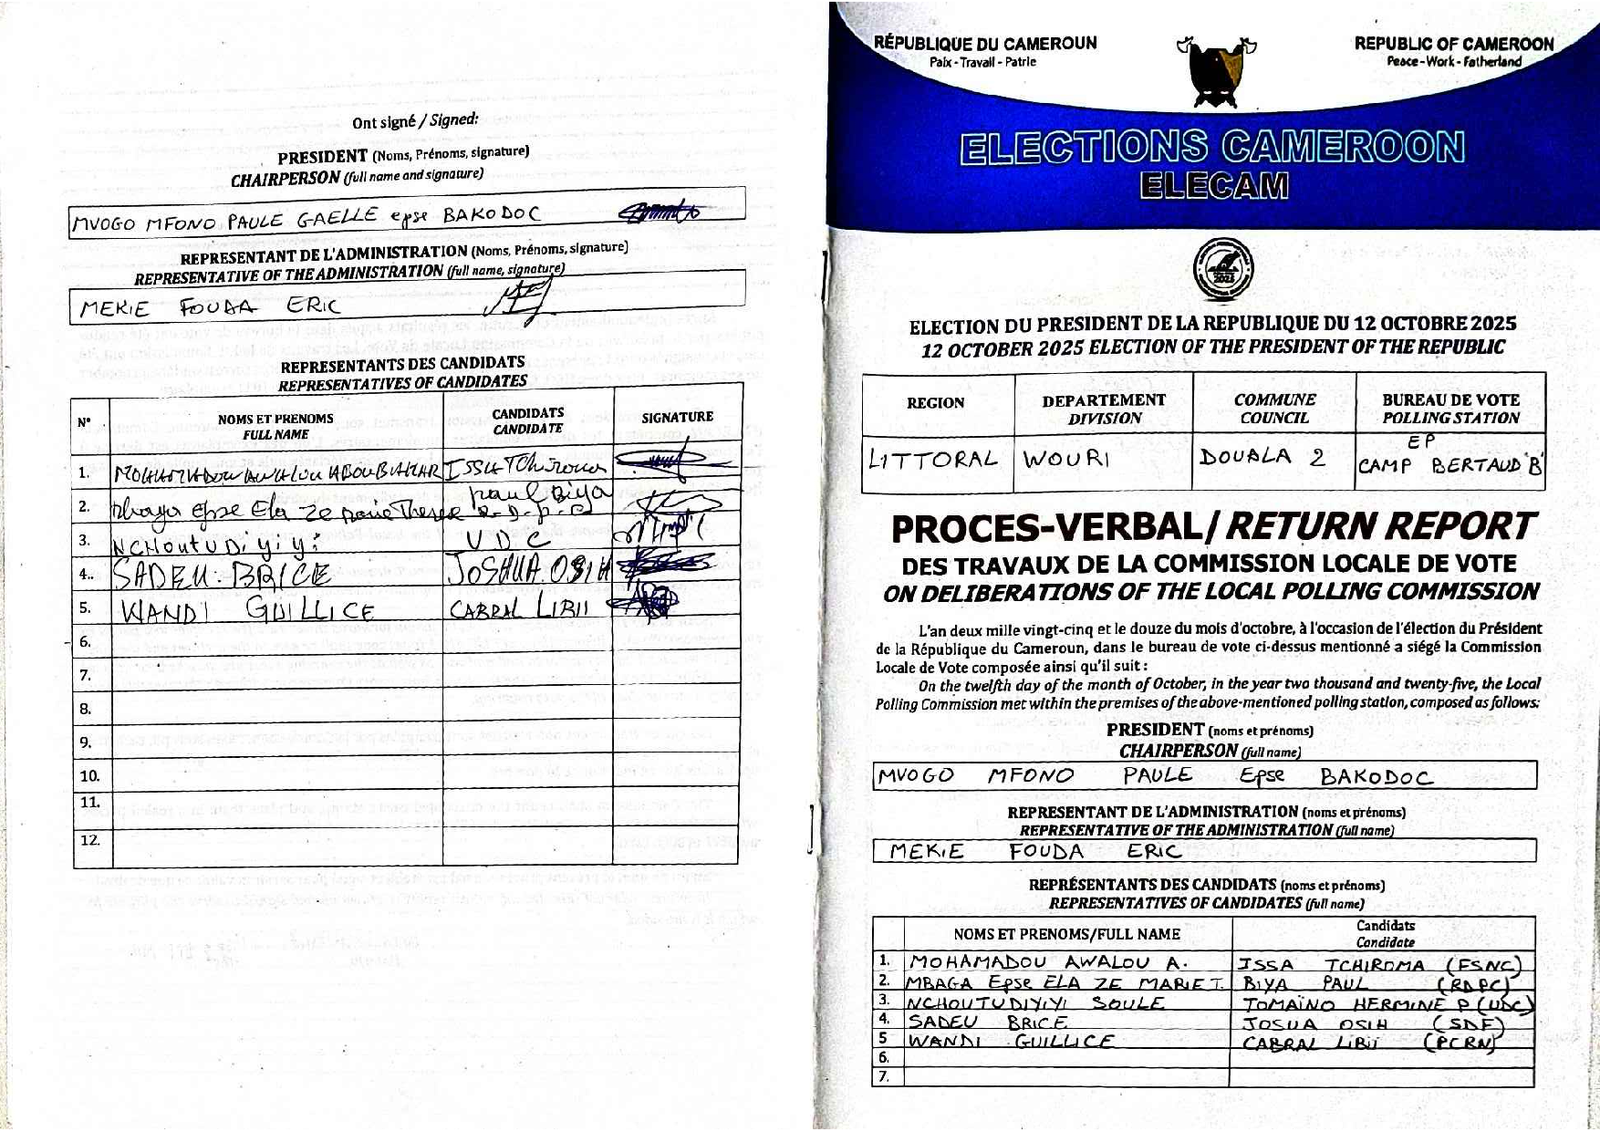 Ont signé / Signed:
PRESIDENT (Noms, Prénoms, signature)
CHAIRPERSON (full name and signature)
MVOGO MFONO PAULE GAELLE epse BAKODOC
REPRESENTANT DE L'ADMINISTRATION (Noms, Prénoms, signature)
REPRESENTATIVE OF THE ADMINISTRATION (full name, signature)
MEKIE FOUDA ERIC
REPRESENTANTS DES CANDIDATS
REPRESENTATIVES OF CANDIDATES
N° NOMS ET PRENOMS FULL NAME CANDIDATS CANDIDATE SIGNATURE
1. MOHAMADOU AWALOU ABOUBAKAR ISSA Tchiroma
2. Mbaga Epse Ela Ze Marie Therese Paul Biya R.D.P.C
3. NCHoutUDiyiyi UDC
4.. SADEU BRICE JOSHUA OSIH
5. WANDI GUILLICE CABRAL LIBII
6.
7.
8.
9.
10.
11.
12.
RÉPUBLIQUE DU CAMEROUN
Paix - Travail - Patrie
REPUBLIC OF CAMEROON
Peace - Work - Fatherland
ELECTIONS CAMEROON
ELECAM
2025
ELECTION DU PRESIDENT DE LA REPUBLIQUE DU 12 OCTOBRE 2025
12 OCTOBER 2025 ELECTION OF THE PRESIDENT OF THE REPUBLIC
REGION DEPARTEMENT DIVISION COMMUNE COUNCIL BUREAU DE VOTE POLLING STATION
LITTORAL WOURI DOUALA 2 EP CAMP BERTAUD 'B'
PROCES-VERBAL/ RETURN REPORT
DES TRAVAUX DE LA COMMISSION LOCALE DE VOTE
ON DELIBERATIONS OF THE LOCAL POLLING COMMISSION
L'an deux mille vingt-cinq et le douze du mois d'octobre, à l'occasion de l'élection du Président
de la République du Cameroun, dans le bureau de vote ci-dessus mentionné a siégé la Commission
Locale de Vote composée ainsi qu'il suit :
On the twelfth day of the month of October, in the year two thousand and twenty-five, the Local
Polling Commission met within the premises of the above-mentioned polling station, composed as follows:
PRESIDENT (noms et prénoms)
CHAIRPERSON (full name)
MVOGO MFONO PAULE Epse BAKODOC
REPRESENTANT DE L'ADMINISTRATION (noms et prénoms)
REPRESENTATIVE OF THE ADMINISTRATION (full name)
MEKIE FOUDA ERIC
REPRÉSENTANTS DES CANDIDATS (noms et prénoms)
REPRESENTATIVES OF CANDIDATES (full name)
NOMS ET PRENOMS/FULL NAME Candidats Candidate
1. MOHAMADOU AWALOU A. ISSA TCHIROMA (FSNC)
2. MBAGA Epse ELA ZE MARIE T. BIYA PAUL (RDPC)
3. NCHOUTUDIYIYI SOULE TOMAÏNO HERMINE P (UDC)
4. SADEU BRICE JOSUA OSIH (SDF)
5 WANDI GUILLICE CABRAL LIBII (PCRN)
6.
7.